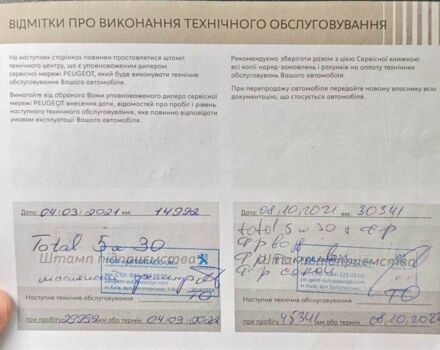 ВІДМІТКИ ПРО ВИКОНАННЯ ТЕХНІЧНОГО ОБСЛУГОВУВАННЯ
На наступних сторінках повинен проставлятися штамп
технічного центру, що є уповноваженим дилером
сервісної мережі PEUGEOT, який буде виконувати технічне
обслуговування Вашого автомобіля.
Вимагайте від обраного Вами уповноваженого дилера сервісної
мережі PEUGEOT внесення дати, відомостей про пробіг і рівень
наступного технічного обслуговування, яке повинно відповідати
умовам експлуатації Вашого автомобіля.
Рекомендуємо зберігати разом з цією Сервісної книжкою
всі копії наряд-замовлень і рахунків на оплату технічних
обслуговувань Вашого автомобіля.
При перепродажу автомобіля передайте новому власнику всю
документацію, що стосується автомобіля.
Дата: 04/03/2021 км: 14992
Total 5w30
Штамп підприємства
Наступне технічне обслуговування ТО
при пробігу 29992 км або термін 04/03/2022
Дата: 08.10.2021 км: 30341
total 5w30 + фр
Штамп підприємства
фр салон
Наступне технічне обслуговування ТО
при пробігу 45341 км або термін 08.10.202